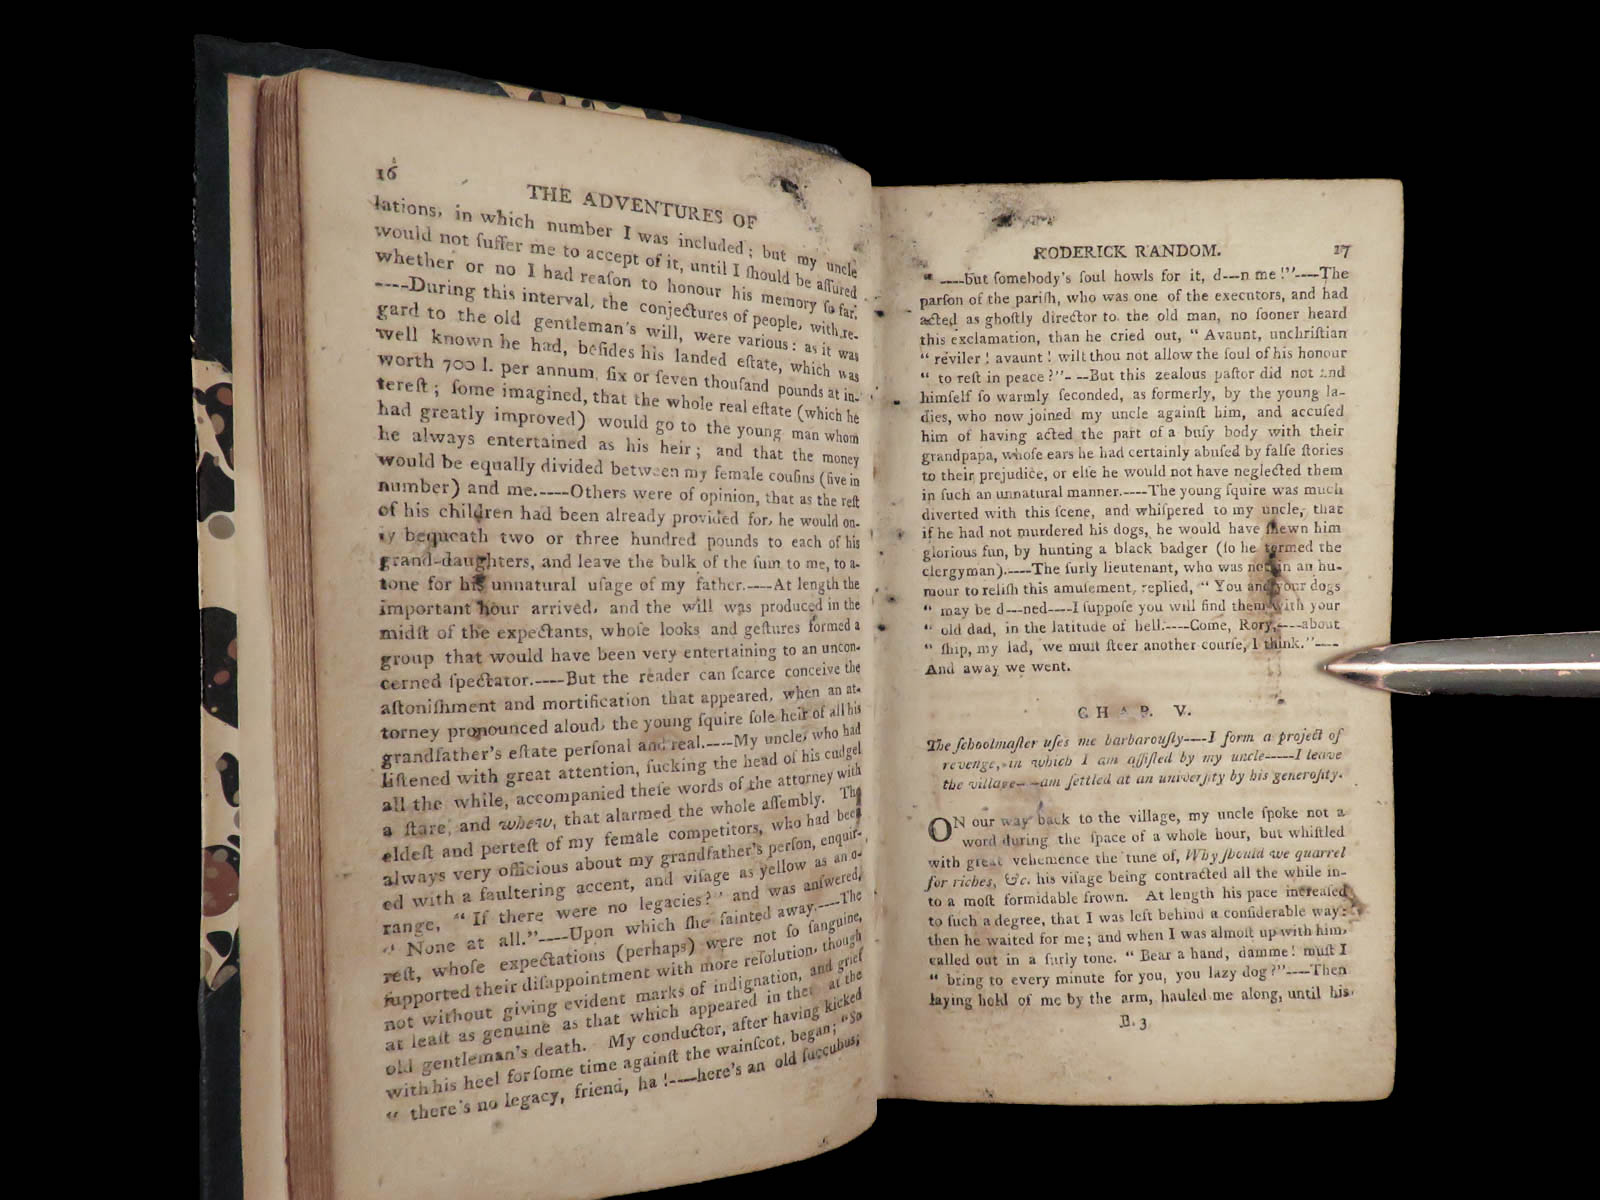 16
THE ADVENTURES OF
lations, in which number I was included; but my uncle
would not ſuffer me to accept of it, until I ſhould be aſſured
whether or no I had reaſon to honour his memory ſo far.
----During this interval, the conjectures of people, with re-
gard to the old gentleman's will, were various: as it was
well known he had, beſides his landed eſtate, which was
worth 700 l. per annum, ſix or ſeven thouſand pounds at in-
tereſt; ſome imagined, that the whole real eſtate (which he
had greatly improved) would go to the young man whom
he always entertained as his heir; and that the money
would be equally divided between my female couſins (five in
number) and me.----Others were of opinion, that as the reſt
of his children had been already provided for, he would on-
ly bequeath two or three hundred pounds to each of his
grand-daughters, and leave the bulk of the ſum to me, to a-
tone for his unnatural uſage of my father.----At length the
important hour arrived, and the will was produced in the
midſt of the expectants, whoſe looks and geſtures formed a
group that would have been very entertaining to an uncon-
cerned ſpectator.----But the reader can ſcarce conceive the
aſtoniſhment and mortification that appeared, when an at-
torney pronounced aloud, the young ſquire ſole heir of all his
grandfather's eſtate perſonal and real.----My uncle, who had
liſtened with great attention, ſucking the head of his cudgel
all the while, accompanied theſe words of the attorney with
a ſtare, and whew, that alarmed the whole aſſembly. The
eldeſt and perteſt of my female competitors, who had been
always very officious about my grandfather's perſon, enquir-
ed with a faultering accent, and viſage as yellow as an o-
range, "If there were no legacies?" and was anſwered,
" None at all."----Upon which ſhe fainted away.----The
reſt, whoſe expectations (perhaps) were not ſo ſanguine,
ſupported their diſappointment with more reſolution, though
not without giving evident marks of indignation, and grief
at leaſt as genuine as that which appeared in them at the
old gentleman's death. My conductor, after having kicked
with his heel for ſome time againſt the wainſcot, began; "So
" there's no legacy, friend, ha!----here's an old ſuccubus;
RODERICK RANDOM. 17
" ----but ſomebody's ſoul howls for it, d---n me!"----The
parſon of the pariſh, who was one of the executors, and had
acted as ghoſtly director to the old man, no ſooner heard
this exclamation, than he cried out, " Avaunt, unchriſtian
" reviler! avaunt! wilt thou not allow the ſoul of his honour
" to reſt in peace?"- --But this zealous paſtor did not find
himſelf ſo warmly ſeconded, as formerly, by the young la-
dies, who now joined my uncle againſt him, and accuſed
him of having acted the part of a buſy body with their
grandpapa, whoſe ears he had certainly abuſed by falſe ſtories
to their prejudice, or elſe he would not have neglected them
in ſuch an unnatural manner.----The young ſquire was much
diverted with this ſcene, and whiſpered to my uncle, that
if he had not murdered his dogs, he would have ſhewn him
glorious fun, by hunting a black badger (ſo he termed the
clergyman).----The ſurly lieutenant, who was not in an hu-
mour to reliſh this amuſement, replied, " You and your dogs
" may be d---ned----I ſuppoſe you will find them with your
" old dad, in the latitude of hell.----Come, Rory,----about
" ſhip, my lad, we muſt ſteer another courſe, I think."----
And away we went.
CHAP. V.
The ſchoolmaſter uſes me barbarouſly----I form a project of
revenge, in which I am aſſiſted by my uncle-----I leave
the village---am ſettled at an univerſity by his generoſity.
ON our way back to the village, my uncle ſpoke not a
word during the ſpace of a whole hour, but whiſtled
with great vehemence the tune of, Why ſhould we quarrel
for riches, &c. his viſage being contracted all the while in-
to a moſt formidable frown. At length his pace increaſed
to ſuch a degree, that I was left behind a conſiderable way:
then he waited for me; and when I was almoſt up with him,
called out in a ſurly tone. " Bear a hand, damme! muſt I
" bring to every minute for you, you lazy dog?"----Then
laying hold of me by the arm, hauled me along, until his
B. 3